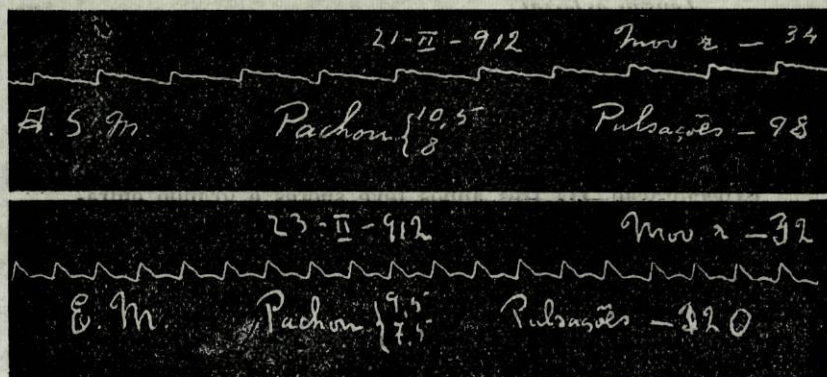 21-II-912 Mov r - 34
A. S. M. Pachon { 10,5 8 Pulsações - 98
23-II-912 Mov r - 32
E. M. Pachon { 9,5 7,5 Pulsações - 120